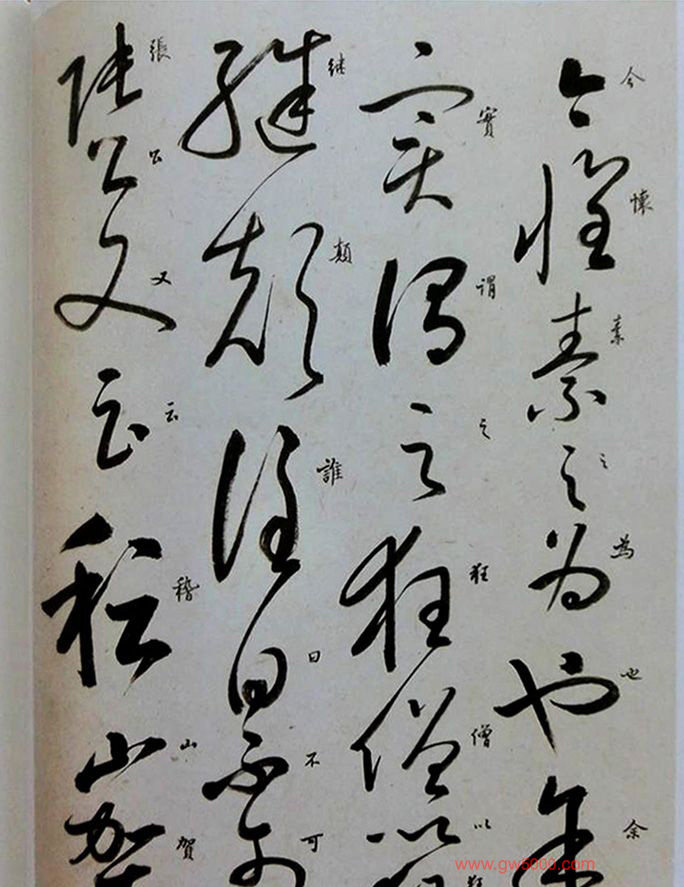 今懷素之為也余
實謂之狂僧以
继顛誰曰不可
張公又云稽山賀
www.gw5000.com